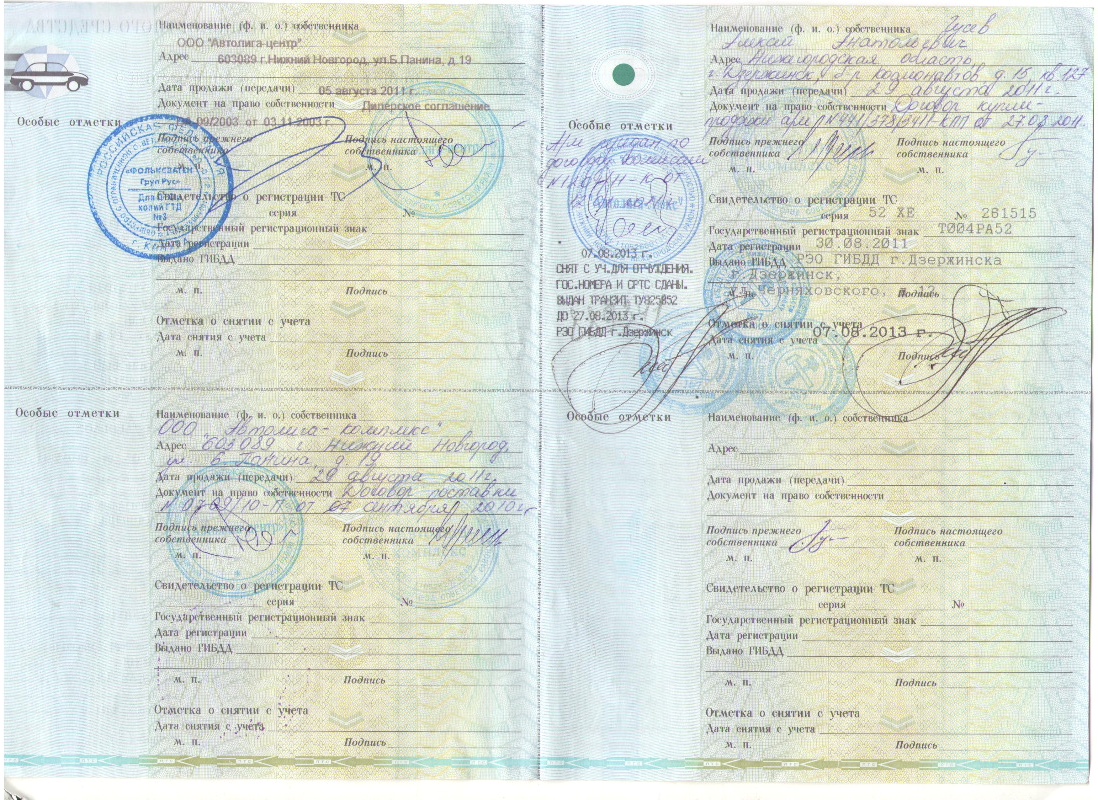 Наименование (ф. и. о.) собственника
ООО "Автолига-центр"
Адрес 603089 г.Нижний Новгород, ул.Б.Панина, д.19
Дата продажи (передачи) 05 августа 2011 г.
Документ на право собственности Дилерское соглашение
09/2003 от 03.11.2003 г
Особые отметки
Подпись прежнего собственника
Подпись настоящего собственника
м. п.
м. п.
РОССИЙСКАЯ ФЕДЕРАЦИЯ
«ФОЛЬКСВАГЕН
Груп Рус»
№3
Свидетельство о регистрации ТС
серия №
Государственный регистрационный знак
Дата регистрации
Выдано ГИБДД
м. п. Подпись
Отметка о снятии с учета
Дата снятия с учета
м. п. Подпись
Особые отметки
Наименование (ф. и. о.) собственника
ООО "Автолига-комплекс"
Адрес 603089 г. Нижний Новгород,
ул. Б. Панина, д. 19
Дата продажи (передачи) 29 августа 2011г.
Документ на право собственности Договор поставки
№ 07-09/10-П от 07 сентября 2010 г.
Подпись прежнего собственника
Подпись настоящего собственника
м. п.
м. п.
Свидетельство о регистрации ТС
серия №
Государственный регистрационный знак
Дата регистрации
Выдано ГИБДД
м. п. Подпись
Отметка о снятии с учета
Дата снятия с учета
м. п. Подпись
Наименование (ф. и. о.) собственника Гусев
Алексей Анатольевич
Адрес Нижегородская область
г. Дзержинск, б-р Космонавтов, д. 15, кв 127
Дата продажи (передачи) 29 августа 2011г.
Документ на право собственности Договор купли-
продажи а/м от 27.08.2011.
Особые отметки
А/м продан по
договору комиссии
07.08.2013 г.
СНЯТ С УЧ.ДЛЯ ОТЧУЖДЕНИЯ.
ГОС.НОМЕРА И СРТС СДАНЫ.
ВЫДАН ТРАНЗИТ ТУ825852
ДО 27.08.2013 г.
РЭО ГИБДД г.Дзержинск
Подпись прежнего собственника
Подпись настоящего собственника
м. п.
м. п.
Свидетельство о регистрации ТС
серия 52 ХЕ № 281515
Государственный регистрационный знак Т004РА52
Дата регистрации 30.08.2011
Выдано ГИБДД РЭО ГИБДД г.Дзержинска
г.Дзержинск,
ул.Черняховского, д.12
м. п. Подпись
Отметка о снятии с учета
Дата снятия с учета 07.08.2013 г.
м. п. Подпись
Особые отметки
Наименование (ф. и. о.) собственника
Адрес
Дата продажи (передачи)
Документ на право собственности
Подпись прежнего собственника
Подпись настоящего собственника
м. п.
м. п.
Свидетельство о регистрации ТС
серия №
Государственный регистрационный знак
Дата регистрации
Выдано ГИБДД
м. п. Подпись
Отметка о снятии с учета
Дата снятия с учета
м. п. Подпись